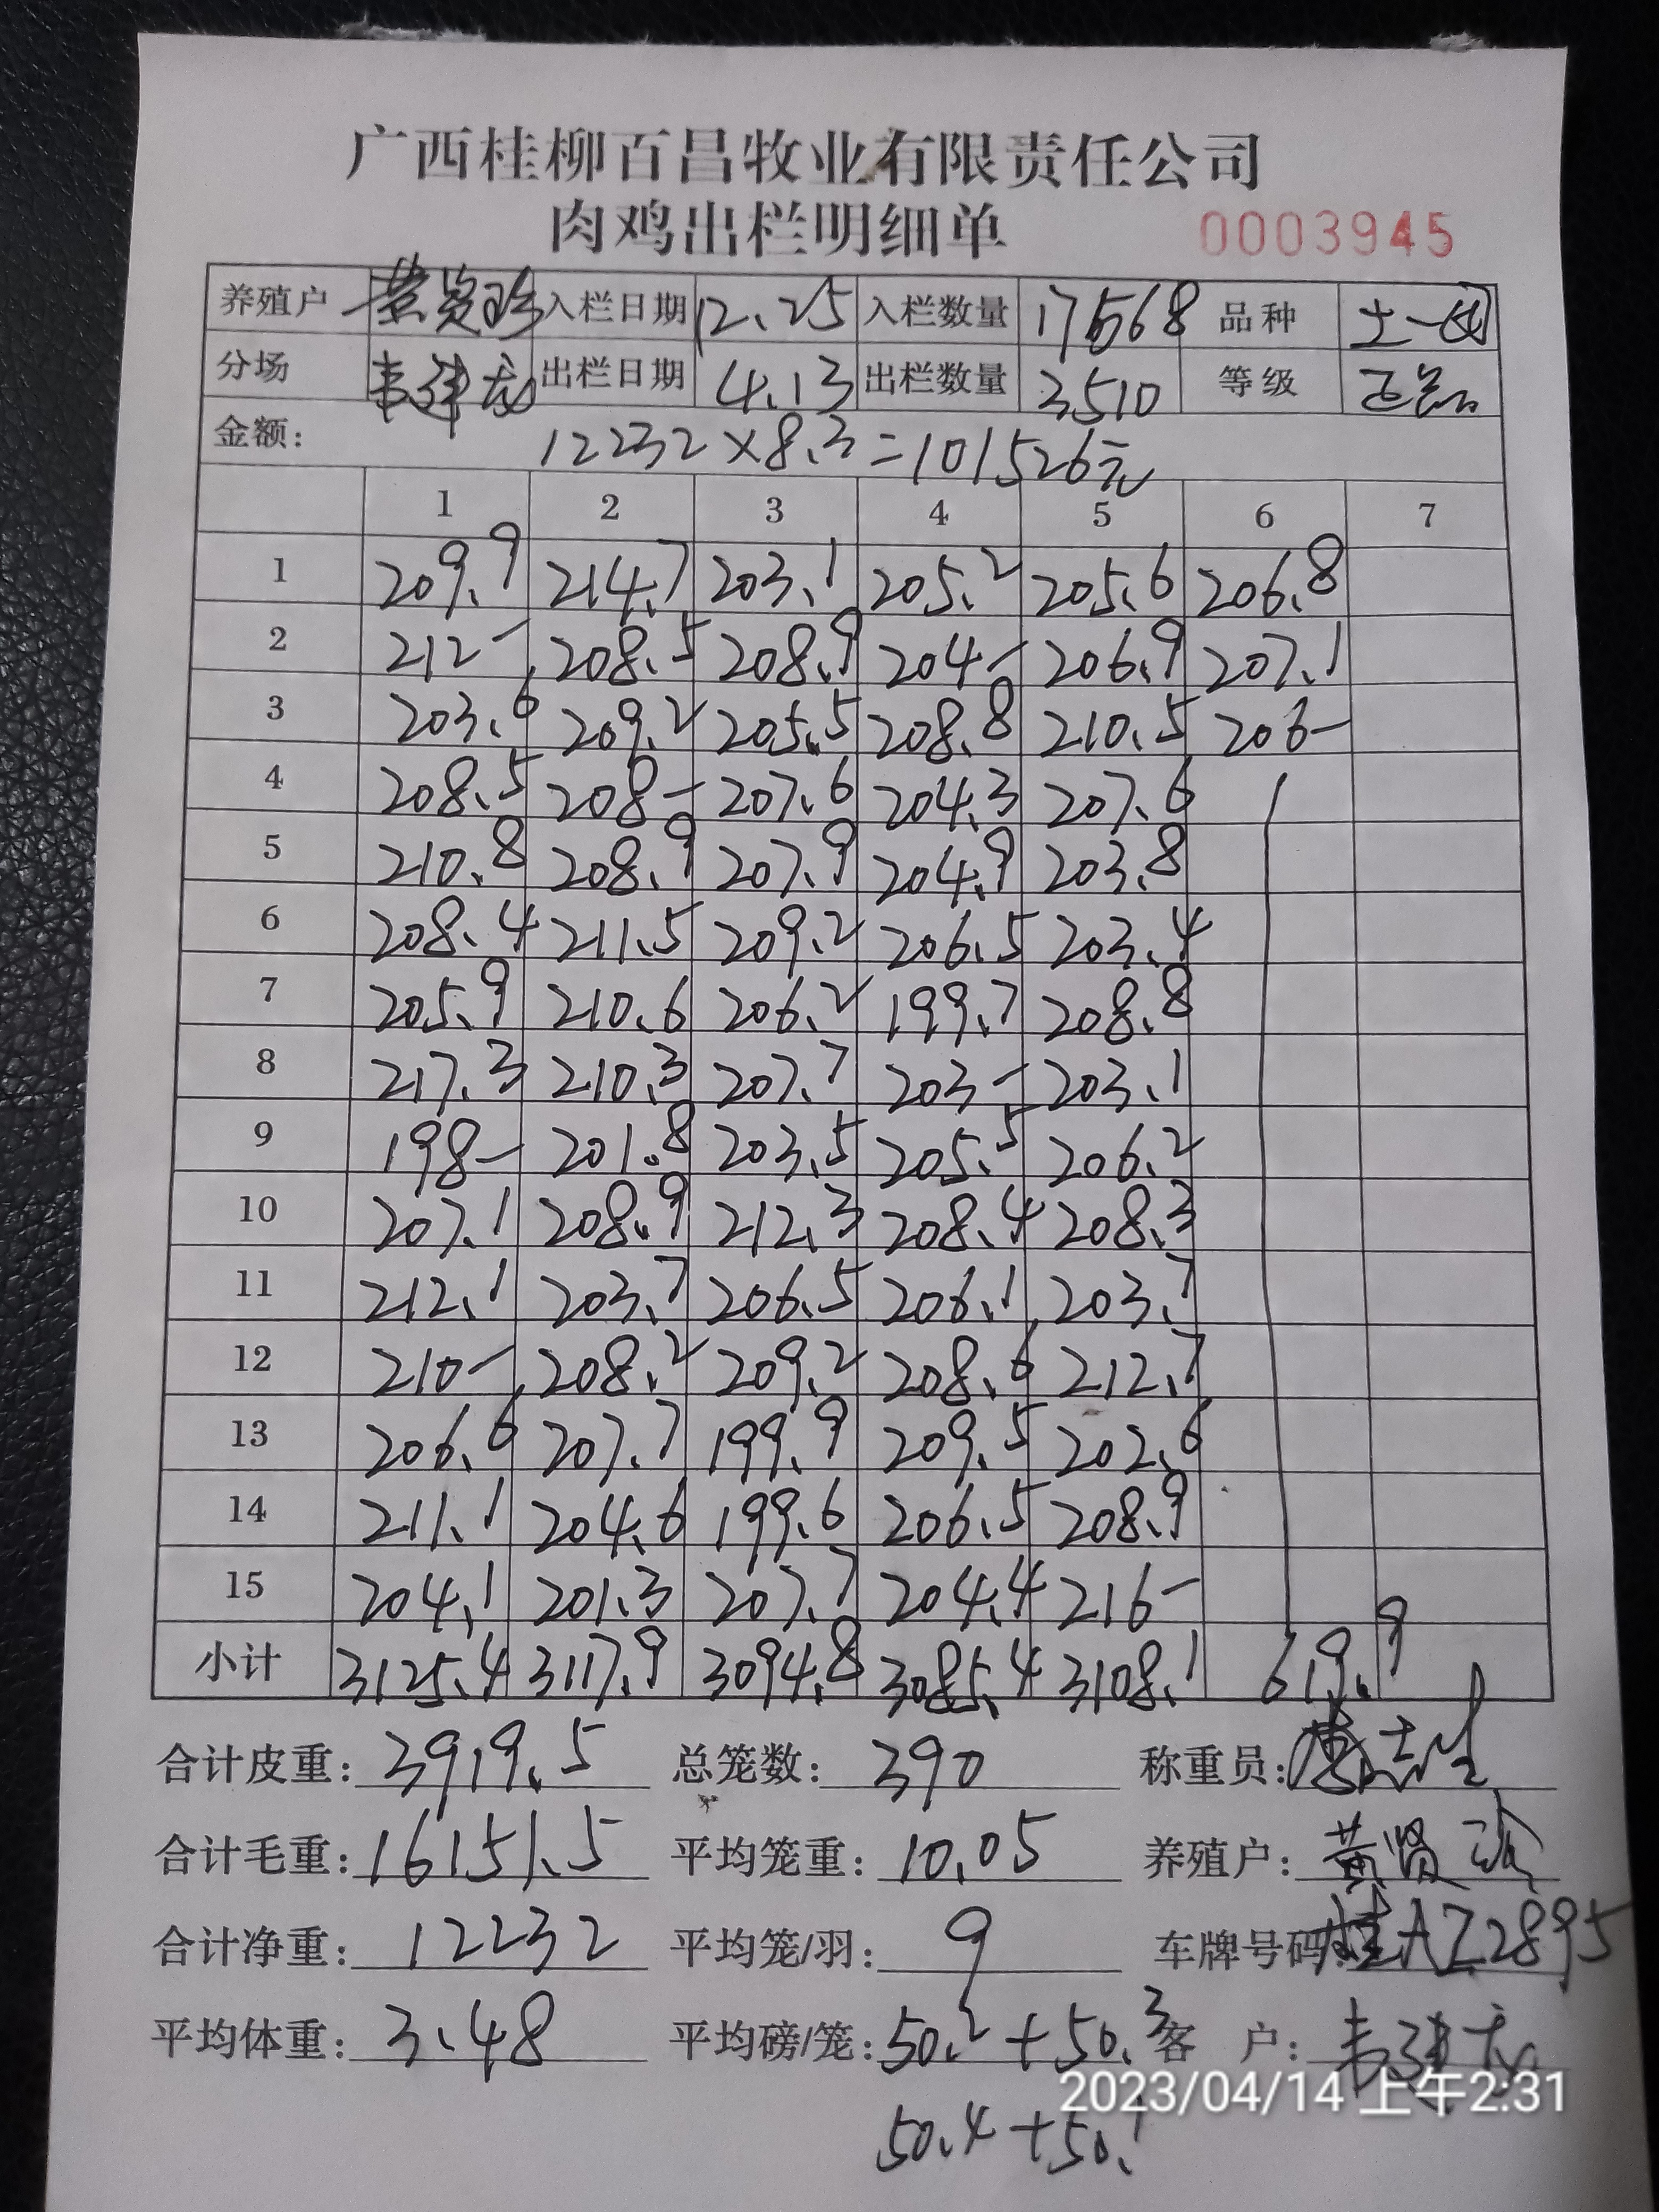 广西桂柳百昌牧业有限责任公司
肉鸡出栏明细单 0003945
养殖户 黄贤珍 入栏日期 12.25 入栏数量 17568 品种 土一
分场 韦建龙 出栏日期 4.13 出栏数量 3510 等级 正品
金额: 12232×8.3=101526元
1 2 3 4 5 6 7
1 209.9 214.7 203.1 205.2 205.6 206.8
2 212- 208.5 208.9 204- 206.9 207.1
3 203.6 209.2 205.5 208.8 210.5 206-
4 208.5 208- 207.6 204.3 207.6
5 210.8 208.9 207.9 204.9 203.8
6 208.4 211.5 209.2 206.5 203.4
7 205.9 210.6 206.2 199.7 208.8
8 217.3 210.3 207.7 203- 203.1
9 198- 201.8 203.5 205.5 206.2
10 207.1 208.9 212.3 208.4 208.3
11 212.1 203.7 206.5 206.1 203.7
12 210- 208.2 209.2 208.6 212.7
13 206.6 207.7 199.9 209.5 202.6
14 211.1 204.6 199.6 206.5 208.9
15 204.1 201.3 207.7 204.4 216-
小计 3125.4 3117.9 3094.8 3085.4 3108.1 619.9
合计皮重: 3919.5 总笼数: 390 称重员:
合计毛重: 16151.5 平均笼重: 10.05 养殖户: 黄贤珍
合计净重: 12232 平均笼/羽: 9 车牌号码: 桂AZ2895
平均体重: 3.48 平均磅/笼: 50.2+50.3 客 户: 韦建龙
2023/04/14 上午2:31
50.4+50.1